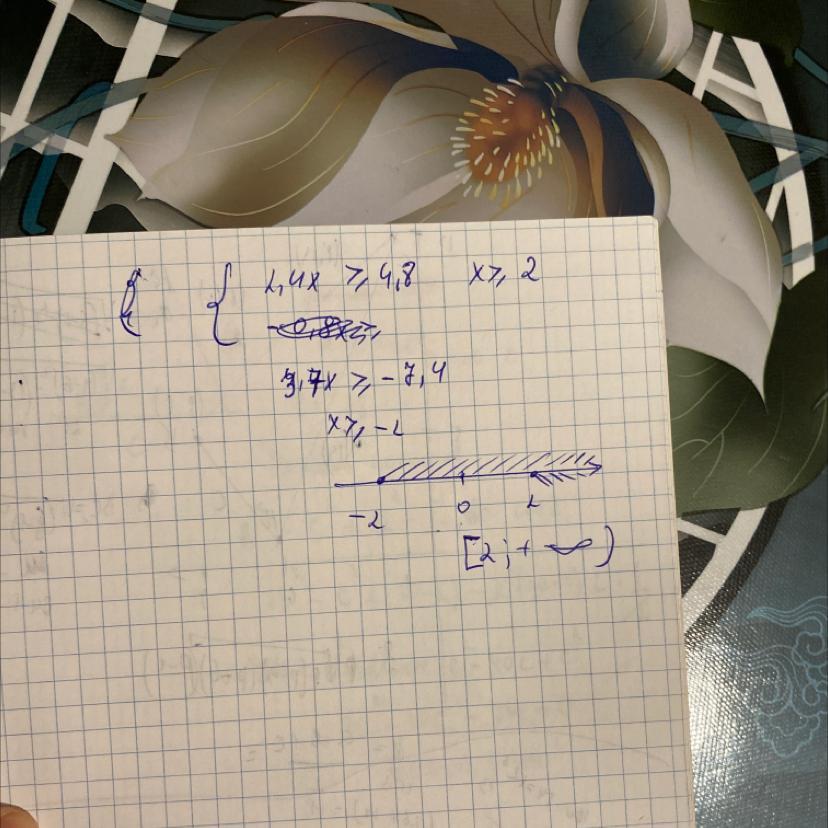 { 2,4x ≥ 4,8 x ≥ 2
3,7x ≥ -7,4
x ≥ -2
-2 0 2
[2; +∞)